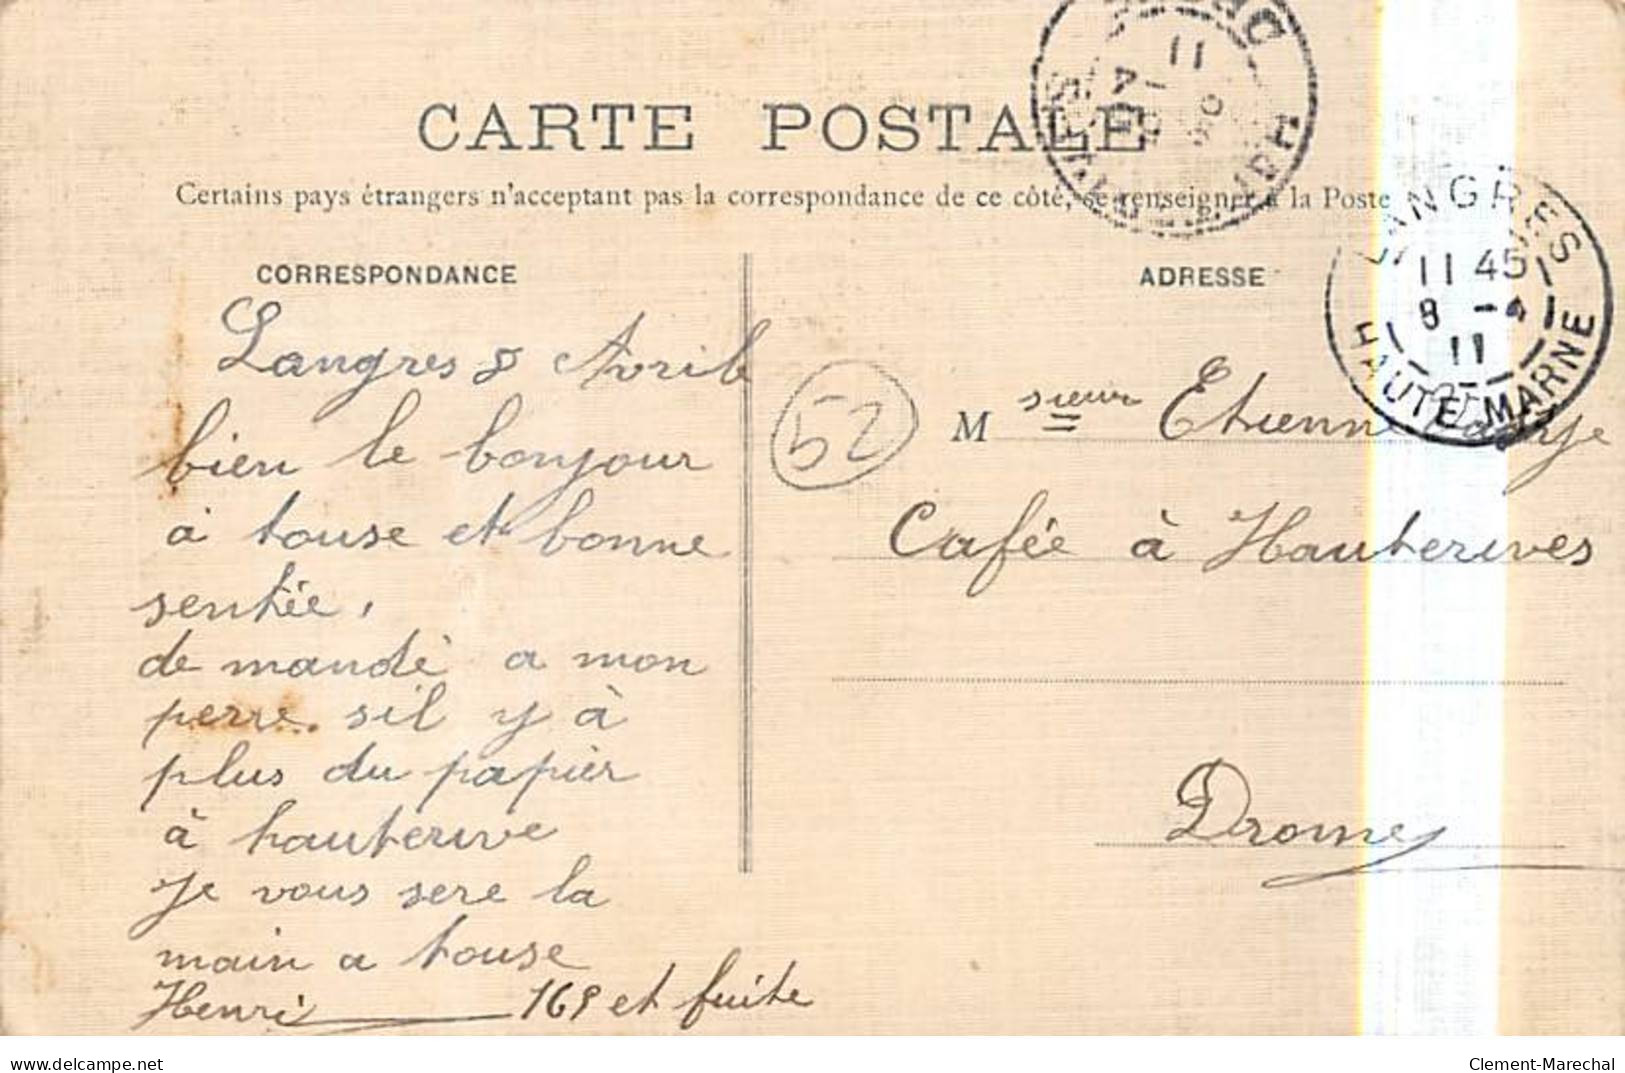 CARTE POSTALE
Certains pays étrangers n'acceptant pas la correspondance de ce côté, se renseigner à la Poste
CORRESPONDANCE
Langres 8 Avril
bien le bonjour
à touse et bonne
sentée,
de mandé a mon
perre sil y à
plus du papièr
à hauterive
Je vous sere la
main a touse
Henri 169 et fuite
52
ADRESSE
LANGRES
11 45
8 - 4
11
HAUTE MARNE
11
Msieur Etienne
Cafée à Hauterives
Drome
delcampe.net
Clement-Marechal